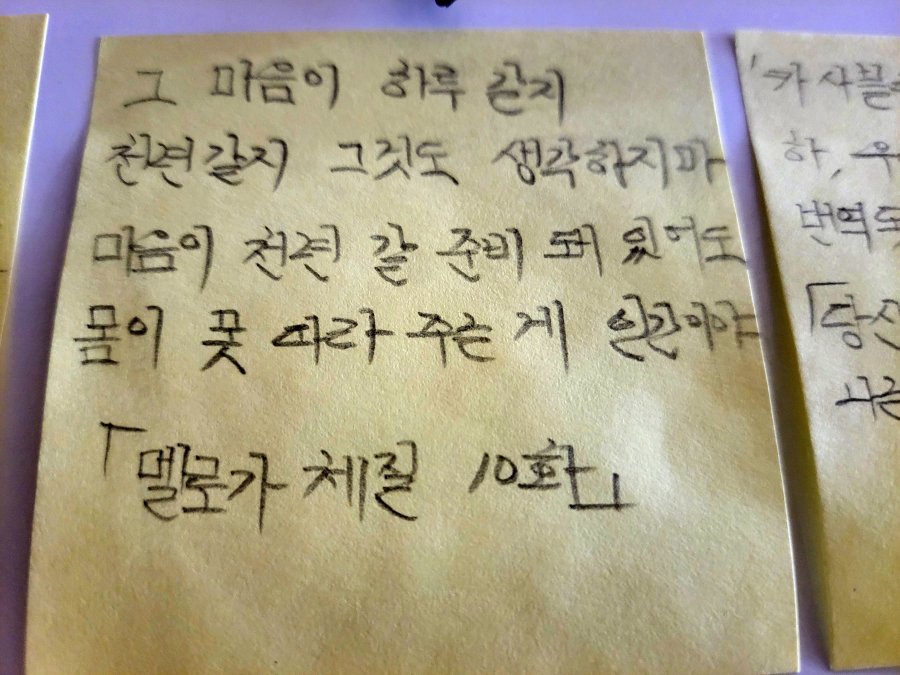 그 마음이 하루 갈지
천년갈지 그것도 생각하지마
마음이 천년 갈 준비 돼 있어도
몸이 못 따라 주는 게 인간이야
「멜로가 체질 10화」
「카사블
하, 우
번역
「당신